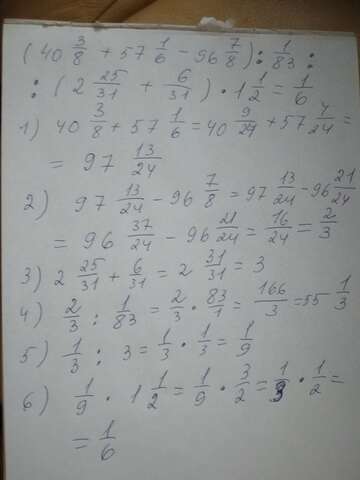 (40 3/8 + 57 1/6 - 96 7/8) : 1/83 :
: (2 25/31 + 6/31) · 1 1/2 = 1/6
1) 40 3/8 + 57 1/6 = 40 9/24 + 57 4/24 =
= 97 13/24
2) 97 13/24 - 96 7/8 = 97 13/24 - 96 21/24
= 96 37/24 - 96 21/24 = 16/24 = 2/3
3) 2 25/31 + 6/31 = 2 31/31 = 3
4) 2/3 : 1/83 = 2/3 · 83/1 = 166/3 = 55 1/3
5) 1/3 : 3 = 1/3 · 1/3 = 1/9
6) 1/9 · 1 1/2 = 1/9 · 3/2 = 1/3 · 1/2 =
= 1/6